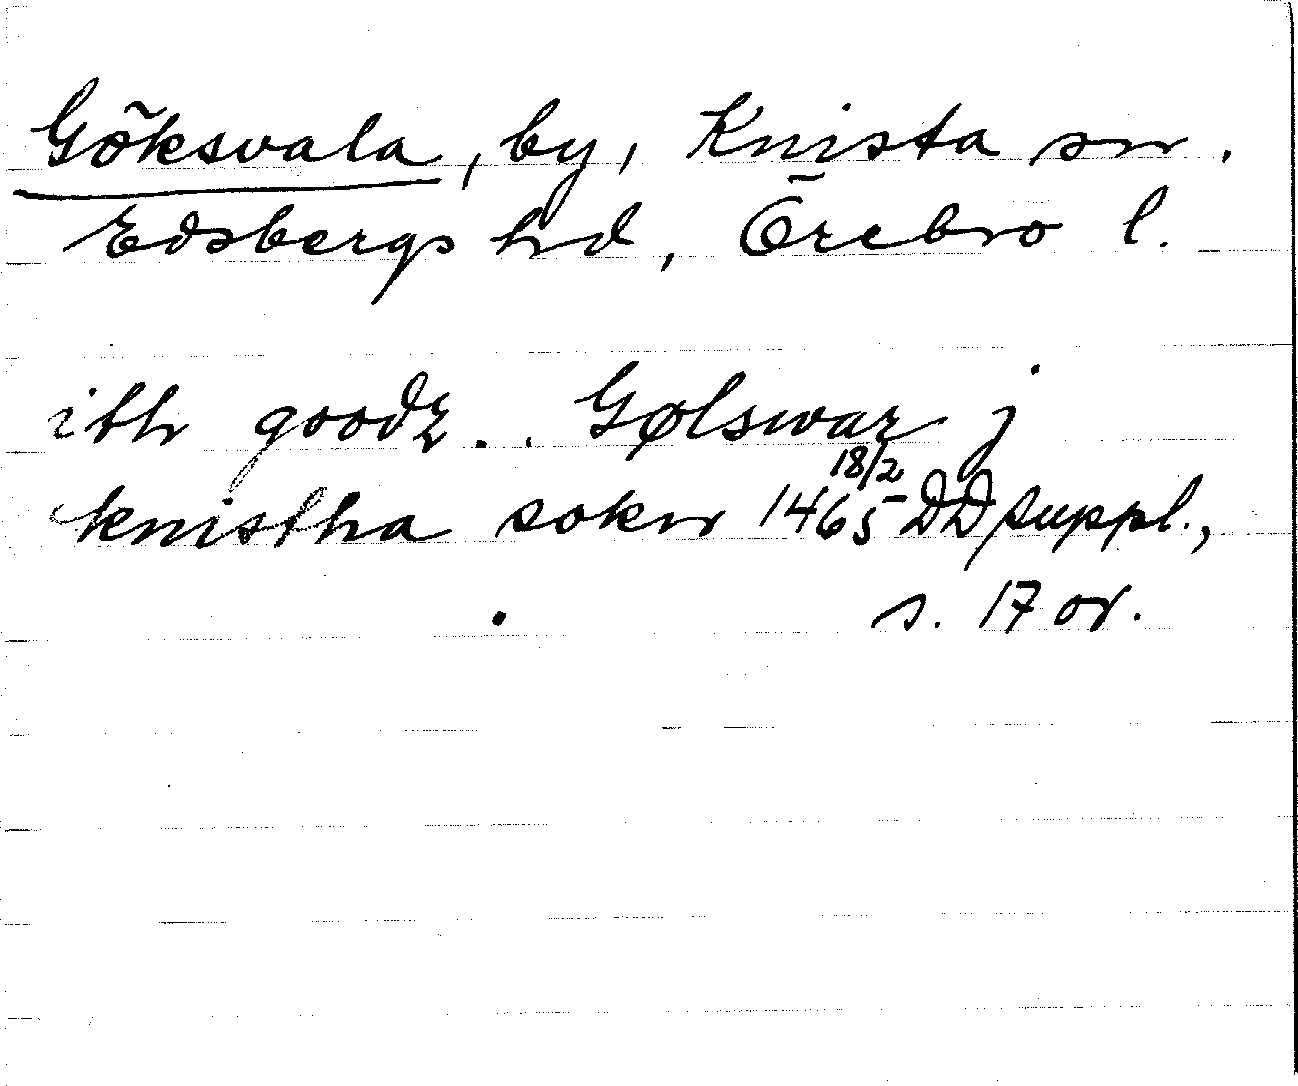 Göksvala, by, Knista sn.
Edsbergs hd, Örebro l.
ith goodz . . Gølswar j
knistha sokn 18/2 1465 DD suppl.,
s. 17 or.